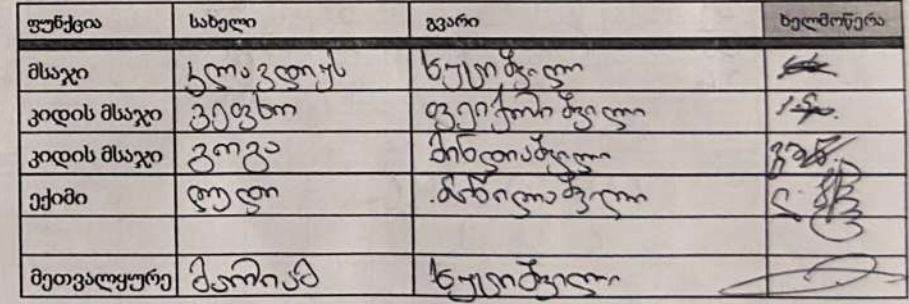 ფუნქცია სახელი გვარი ხელმოწერა
მსაჯი კლავდიუს ხუციშვილი
კიდის მსაჯი ვეფხო ფეიქრიშვილი
კიდის მსაჯი გოგა მინდიაშვილი
ექიმი
მეთვალყურე მარიამ ხუციშვილი